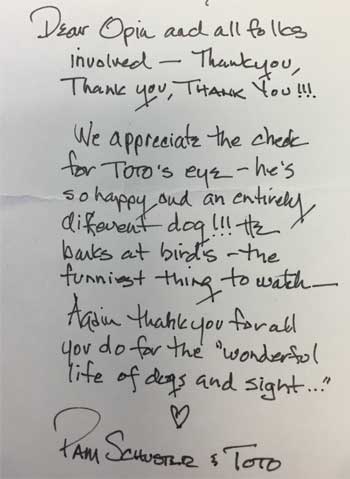 Dear Opin and all folks
involved — Thankyou,
Thank you, THANK YOU!!!
We appreciate the check
for TOTO's eye – he's
so happy and an entirely
different dog!!! He
barks at bird's – the
funniest thing to watch —
Again thank you for all
you do for the "wonderful
life of dogs and sight..."
♡
PAM SCHUSTER & TOTO